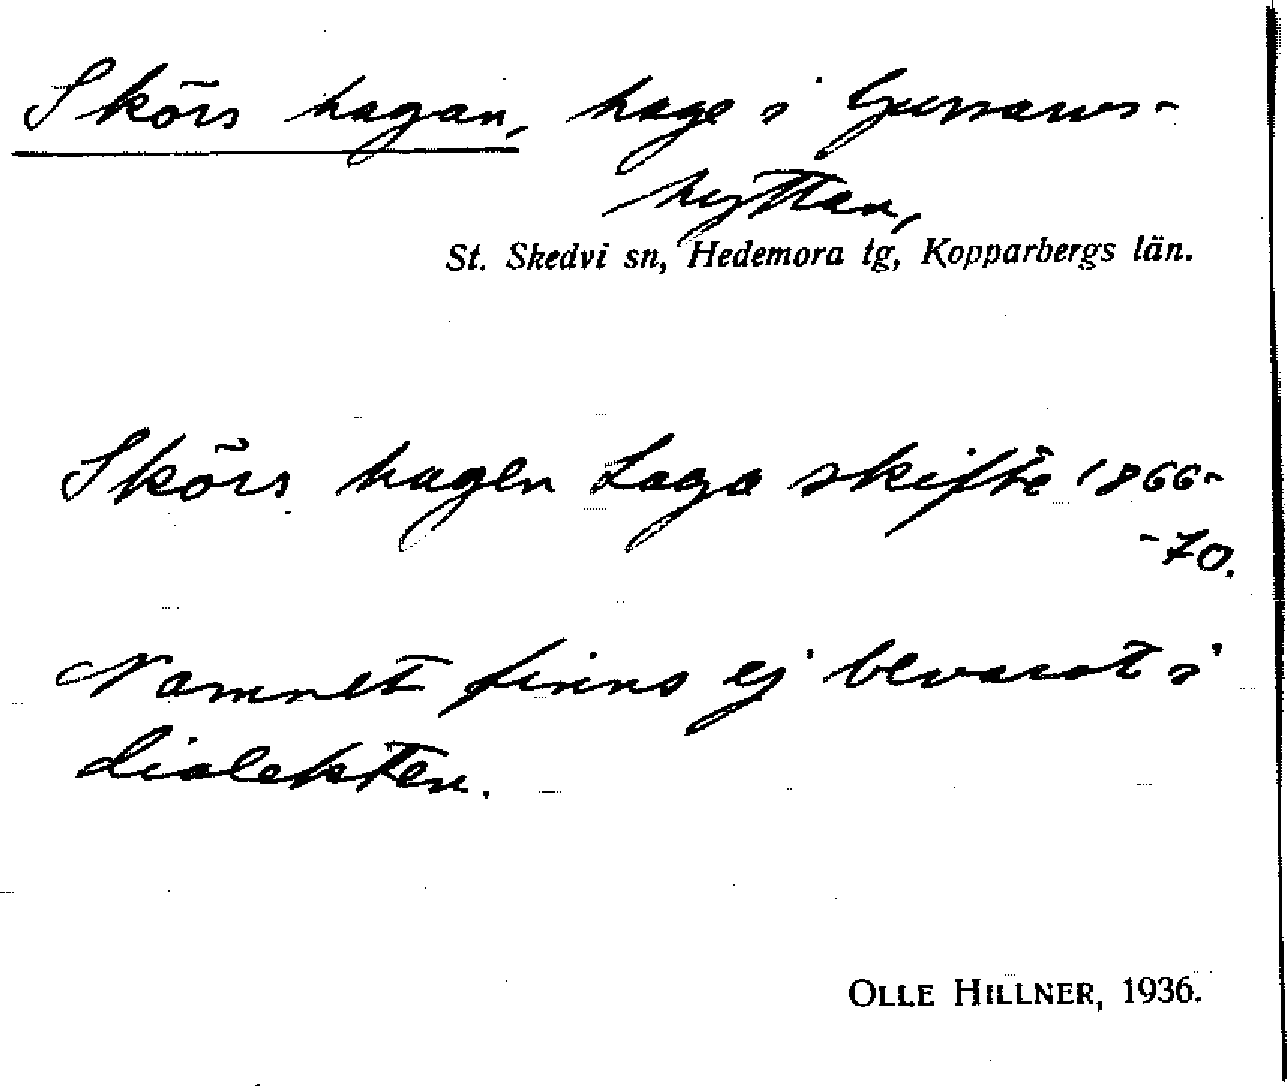 Skörs hagan, hage i Gussarvs-
hyttan,
St. Skedvi sn, Hedemora tg, Kopparbergs län.
Skörs hagen Laga skifte 1866-
-70.
Namnet finns ej bevarat i
dialekten.
OLLE HILLNER, 1936.